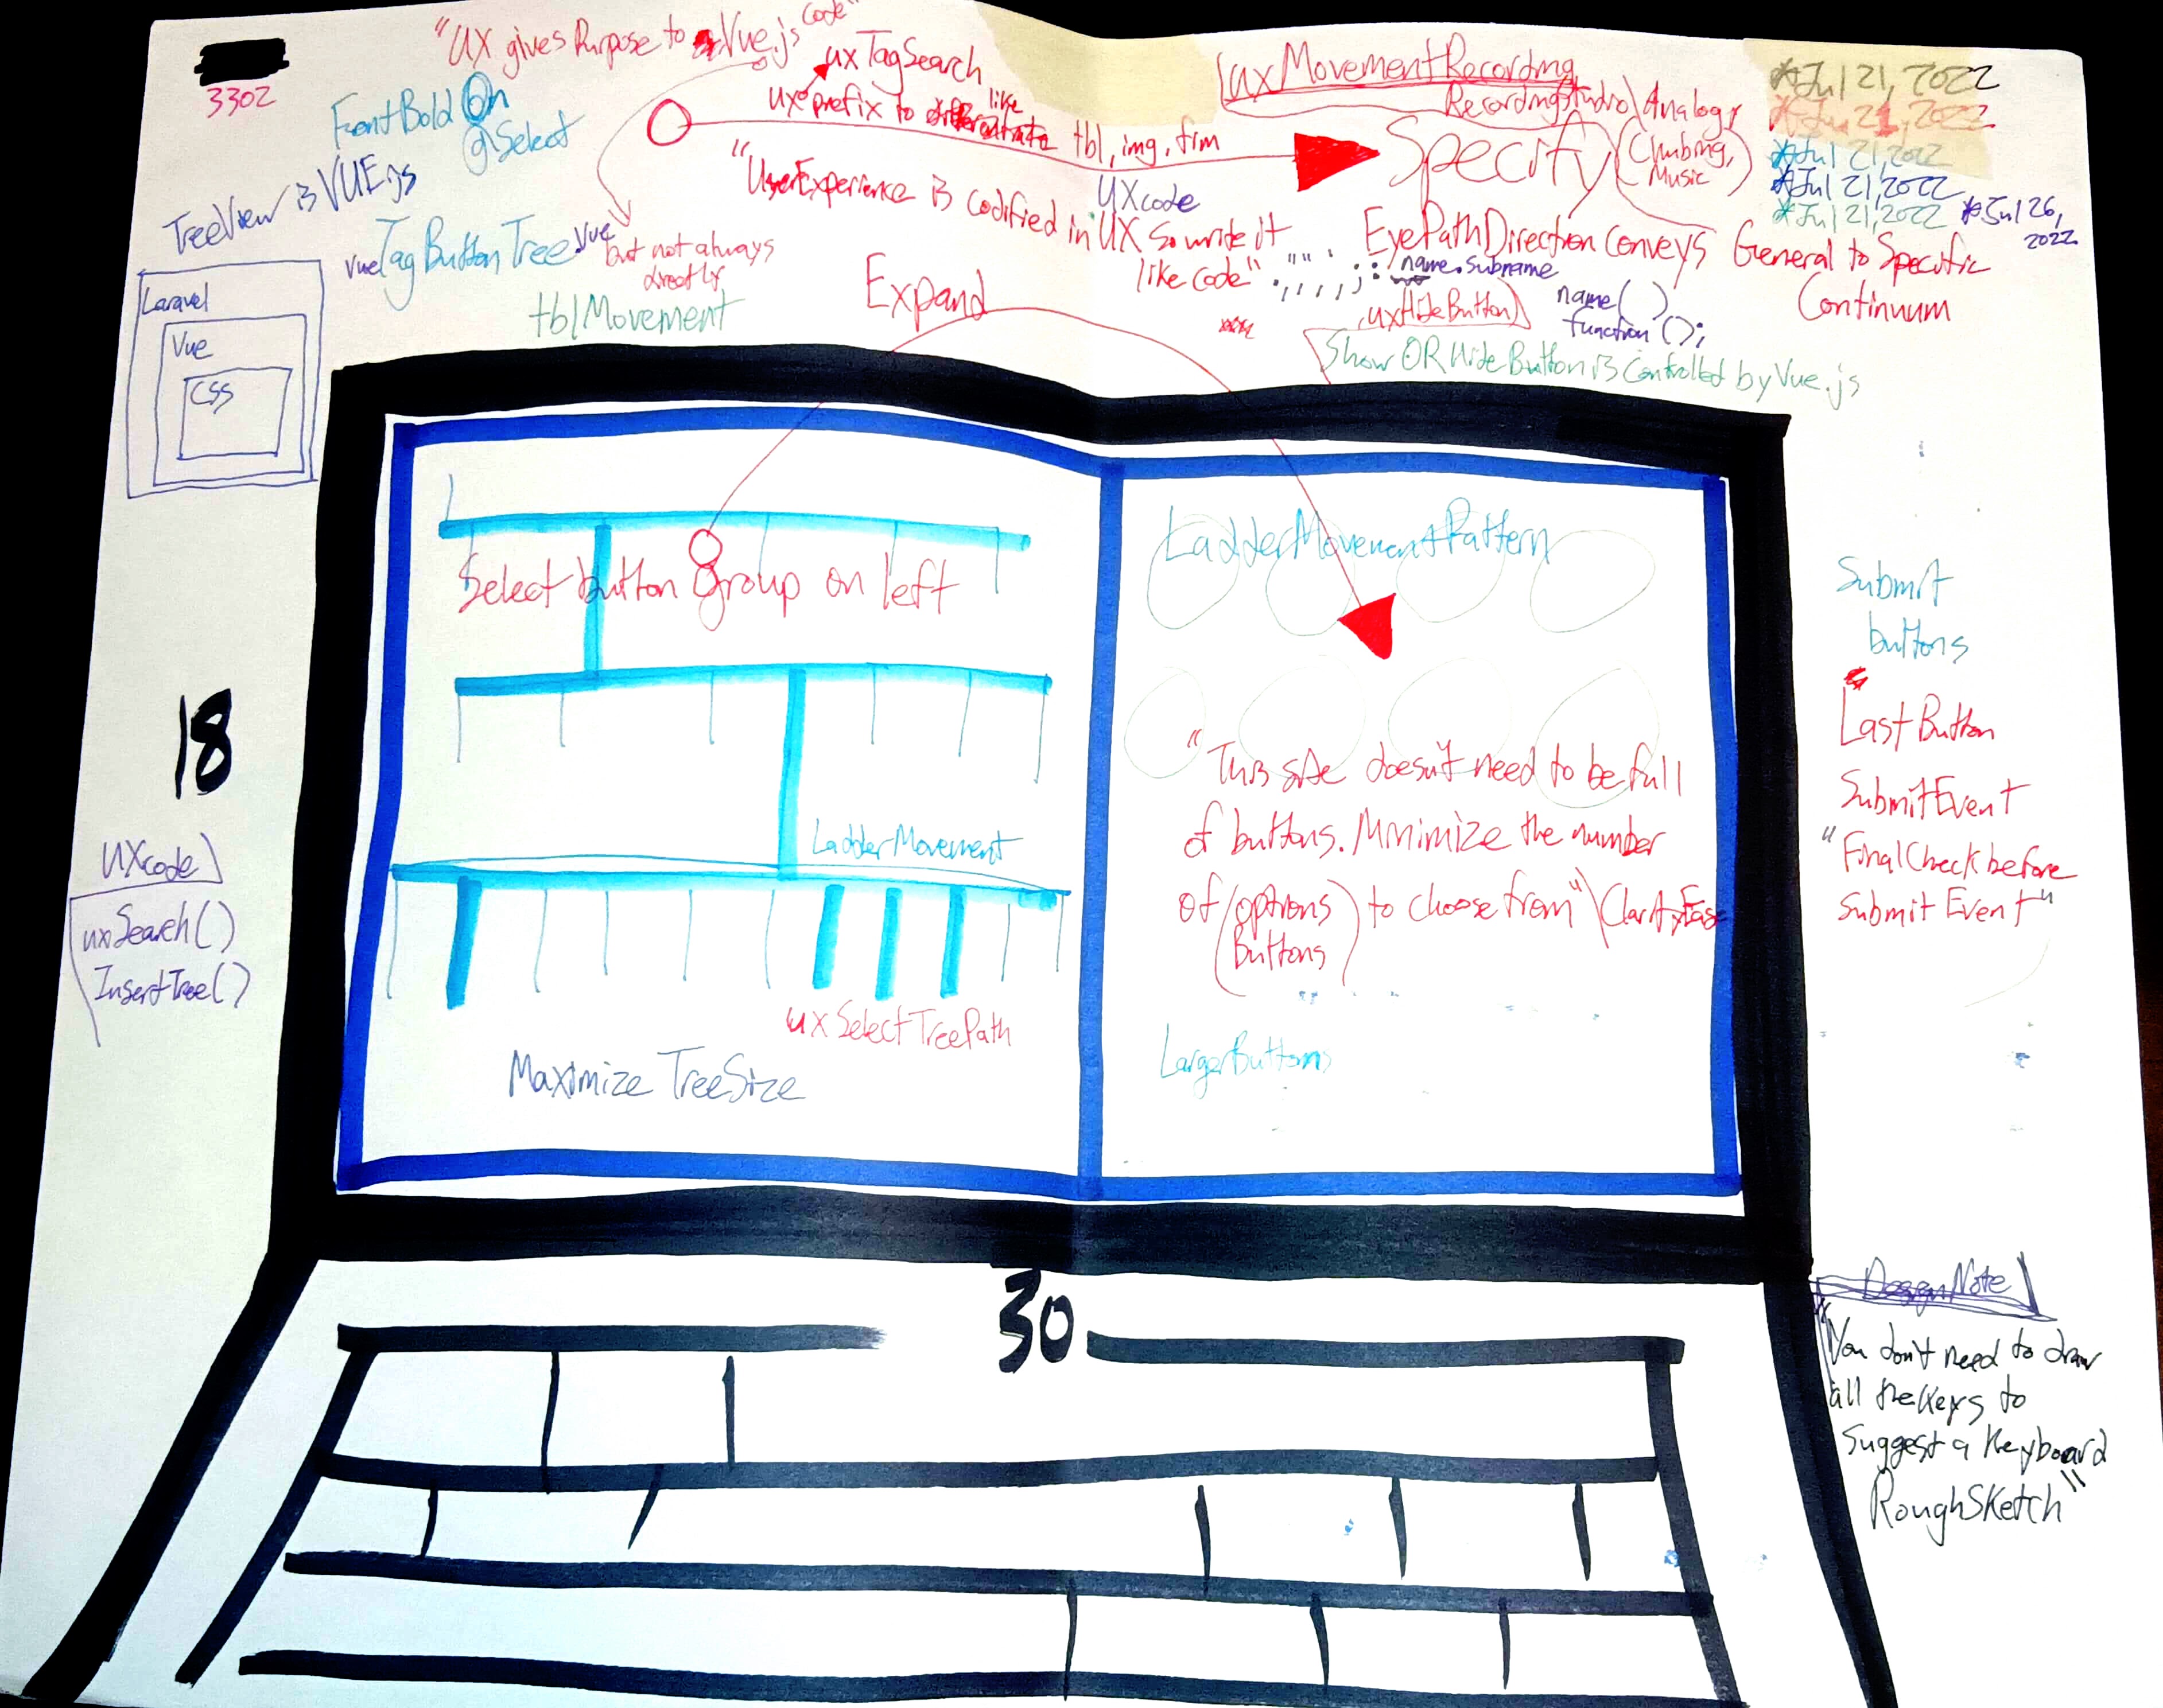 "UX gives Purpose to Vue.js Code"
3302
FontBold On
@Select
uxTagSearch
ux prefix to like
differentiate tbl, img, frm
uxMovementRecording
RecordingStudio Analogy
Specify (Climbing,
Music)
*Jul 21, 2022
*Jul 21, 2022
*Jul 21, 2022
*Jul 21, 2022
*Jul 21, 2022
*Jul 26,
2022
TreeView is VUE.js
vueTagButtonTree.vue
but not always
directly
tblMovement
"UserExperience is codified in UX so write it
like code"
UXcode
Expand
EyePathDirection conveys General to Specific
Continuum
name.subname
name()
function();
uxHideButton
Show OR Hide Button is controlled by Vue.js
Laravel
Vue
CSS
Select button Group on left
LadderMovement
uxSelectTreePath
Maximize TreeSize
LadderMovementPattern
"This site doesn't need to be full
of buttons. Minimize the number
of (options) to choose from"
Buttons
LargerButtons
18
UXcode
uxSearch()
InsertTree()
Submit
buttons
LastButton
SubmitEvent
"FinalCheck before
Submit Event"
30
DesignNote
"You don't need to draw
all the Keys to
suggest a Keyboard
RoughSketch"